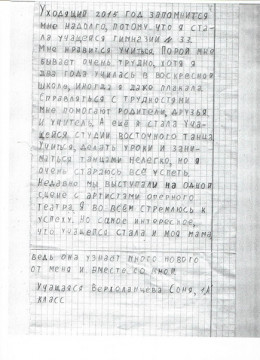 Уходящий 2015 год запомнится
мне надолго, потому что я ста-
ла учащейся гимназии № 32.
Мне нравится учиться. Порой мне
бывает очень трудно, хотя я
два года училась в воскресной
школе, иногда я даже плакала.
Справляться с трудностями
мне помогают родители, друзья
и учитель. А ещё я стала уча-
щейся студии восточного танца.
Учиться, делать уроки и зани-
маться танцами нелегко, но я
очень стараюсь всё успеть.
Недавно мы выступали на одной
сцене с артистами оперного
театра. Я во всём стремлюсь к
успеху. Но самое интересное,
что учащейся стала и моя мама
ведь она узнаёт много нового
от меня и вместе со мной.
Учащаяся Соня, 1
класс